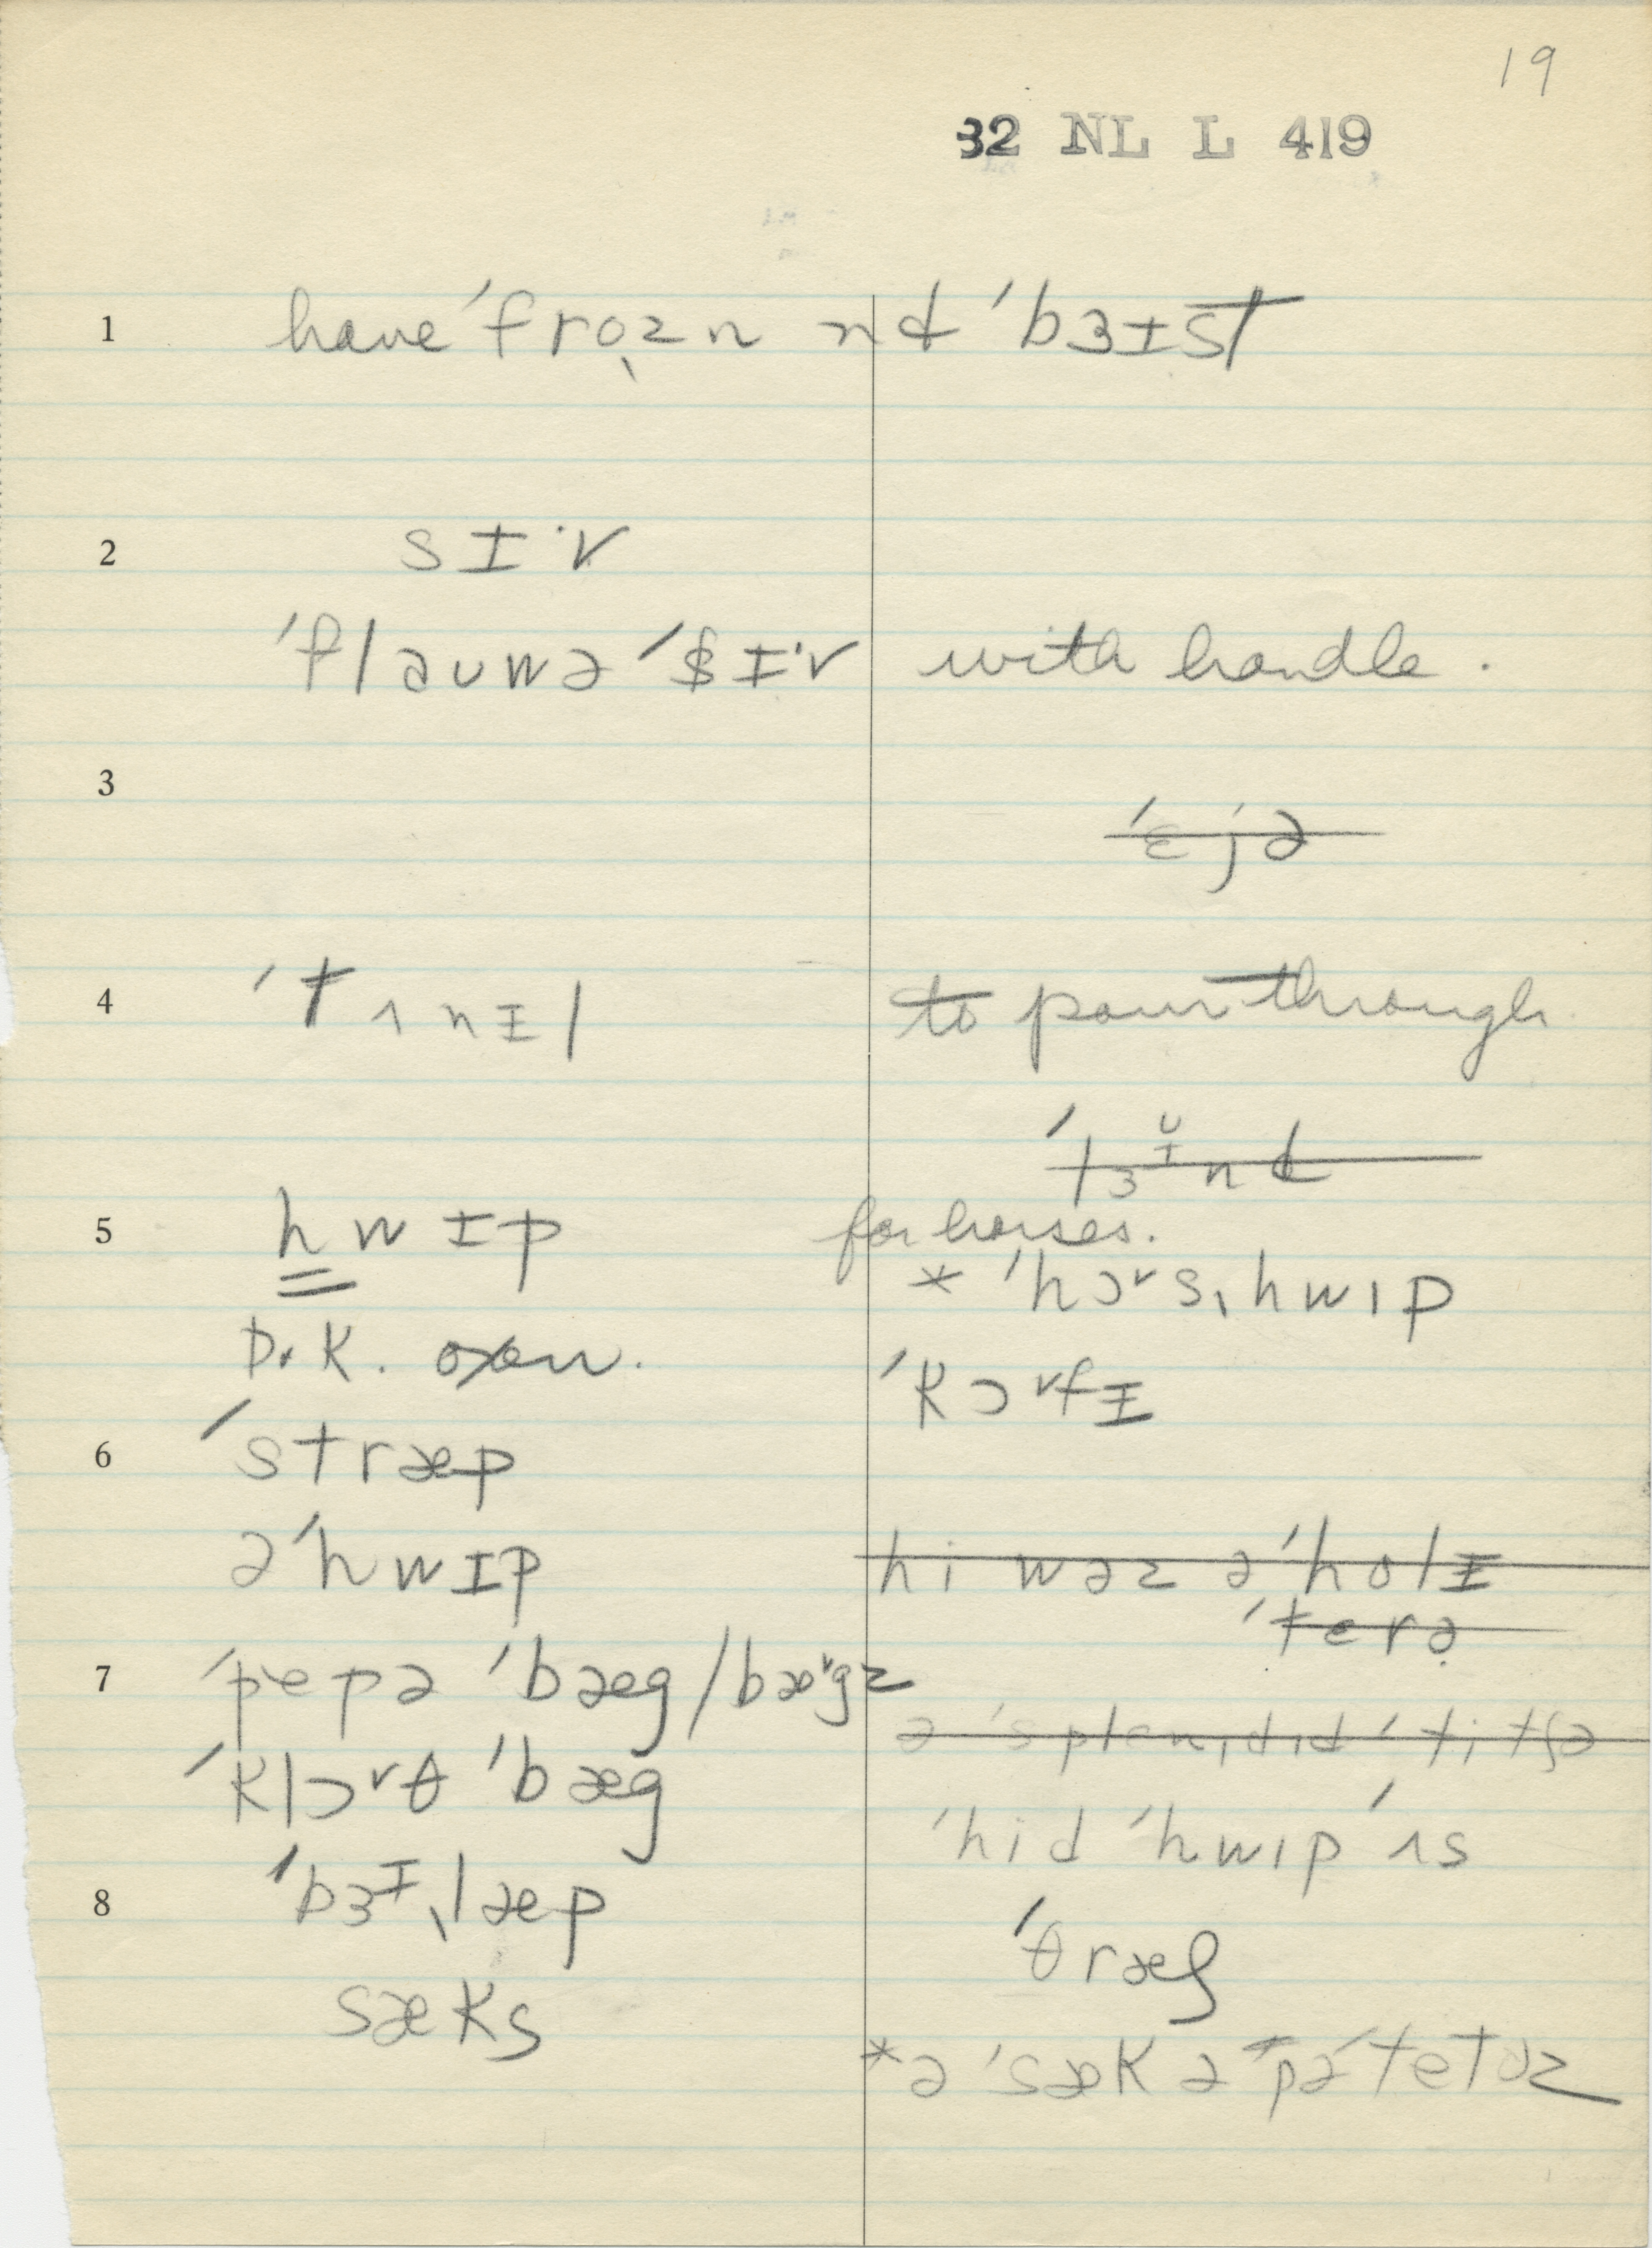 19
32 NL L 419
1 have ˈfro̜zn nd ˈbɜɪst
2 sɪ·v
ˈflaʊwə ˈsɪ·v with handle.
3
ˈɛjə
4 ˈtʌnɪl to pour through
ˈlɜɪnd
5 hwɪp for horses.
* ˈhɔ˅sˌhwɪp
D.K. oxen.
ˈkɔ˅fɪ
6 ˈstræp
əˈhwɪp hi wəz əˈholɪ
ˈterə
7 ˈpepə ˈbæg/bæ˅gz
ə ˈsplɛndɪd ˈtitʃə
ˈklɔ˅θ ˈbæg
ˈhid ˈhwɪp ˈʌs
8 ˈbɜɪˌlæp
ˈθræʃ
sæks
*ə ˈsæk ə pəˈtetəz